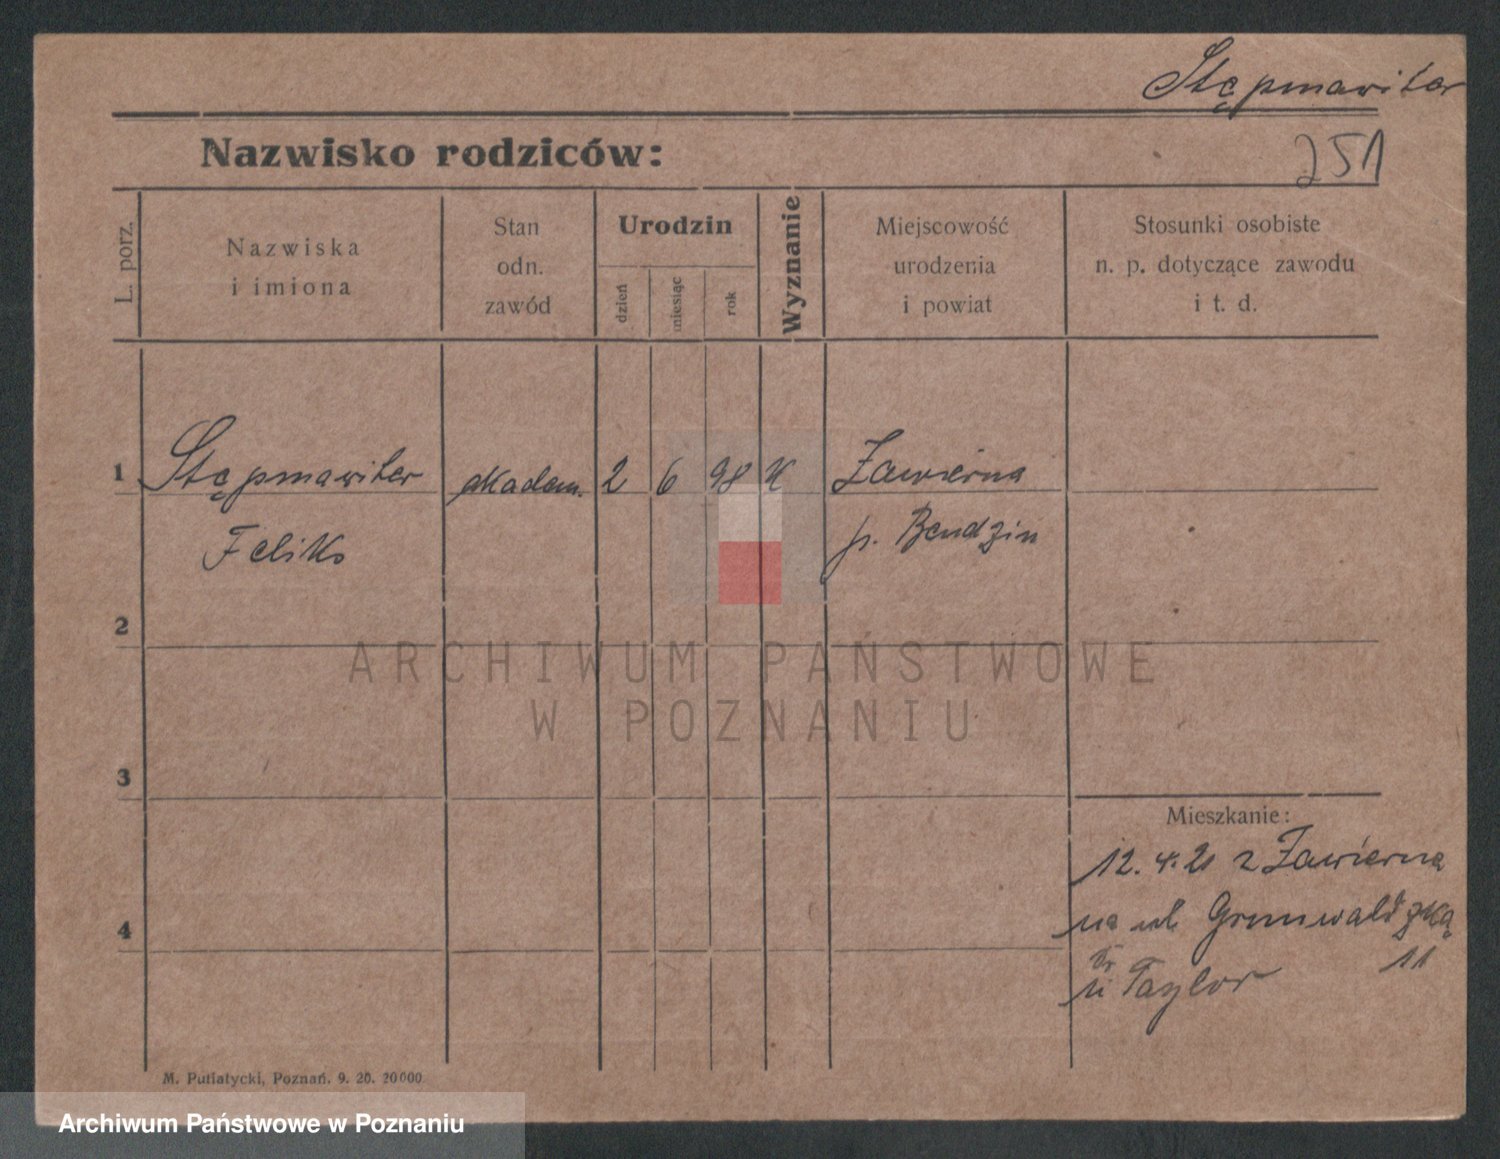 Stępmawiter
251
Nazwisko rodziców:
L. porz.
Nazwiska
i imiona
Stan
odn.
zawód
Urodzin
dzień
miesiąc
rok
Wyznanie
Miejscowość
urodzenia
i powiat
Stosunki osobiste
n. p. dotyczące zawodu
i t. d.
1 Stępmawiter akadem. 2 6 98 K Zawierna
Feliks p. Bendzin
2
ARCHIWUM PAŃSTWOWE
W POZNANIU
3
Mieszkanie:
12.4.21 z Zawierna
na ul. Grunwaldzką
11
4
u Taylor
M. Putiatycki, Poznań. 9. 20. 20000
Archiwum Państwowe w Poznaniu